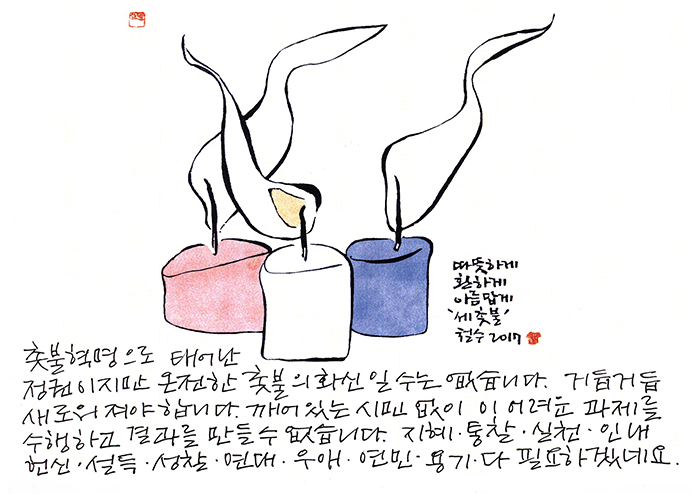 따뜻하게
환하게
아름답게
'세 촛불'
철수 2017
촛불혁명으로 태어난
정권이지만 온전한 촛불의 화신일 수는 없습니다. 거듭거듭
새로워져야 합니다. 깨어있는 시민 없이 이 어려운 과제를
수행하고 결과를 만들 수 없습니다. 지혜·통찰·실천·인내
헌신·설득·성찰·연대·우애·연민·용기·다 필요하겠네요.